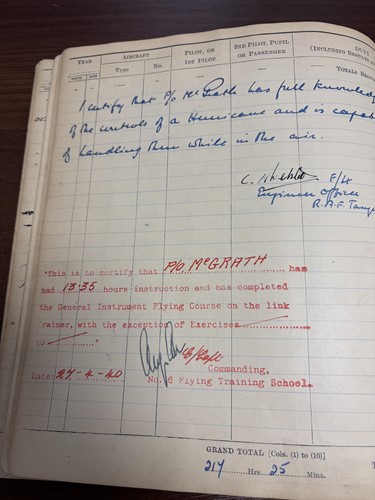 YEAR
AIRCRAFT
PILOT, OR
1ST PILOT
2ND PILOT, PUPIL
OR PASSENGER
DUTY
(INCLUDING RESULTS A
Type
No.
TOTALS BROU
I certify that P/O McGrath has full knowled
of the controls of a Hurricane and is capa
of handling them while in the air.
F/Lt
Engineer Officer
R.A.F. Tang
"This is to certify that P/O. McGRATH has
had 13·35 hours instruction and has completed
the General Instrument Flying Course on the link
Trainer, with the exception of Exercises
to "
Commanding,
Date: 27-4-40 No. 6 Flying Training School.
GRAND TOTAL [Cols. (1) to (10)]
217 Hrs 25 Mins.